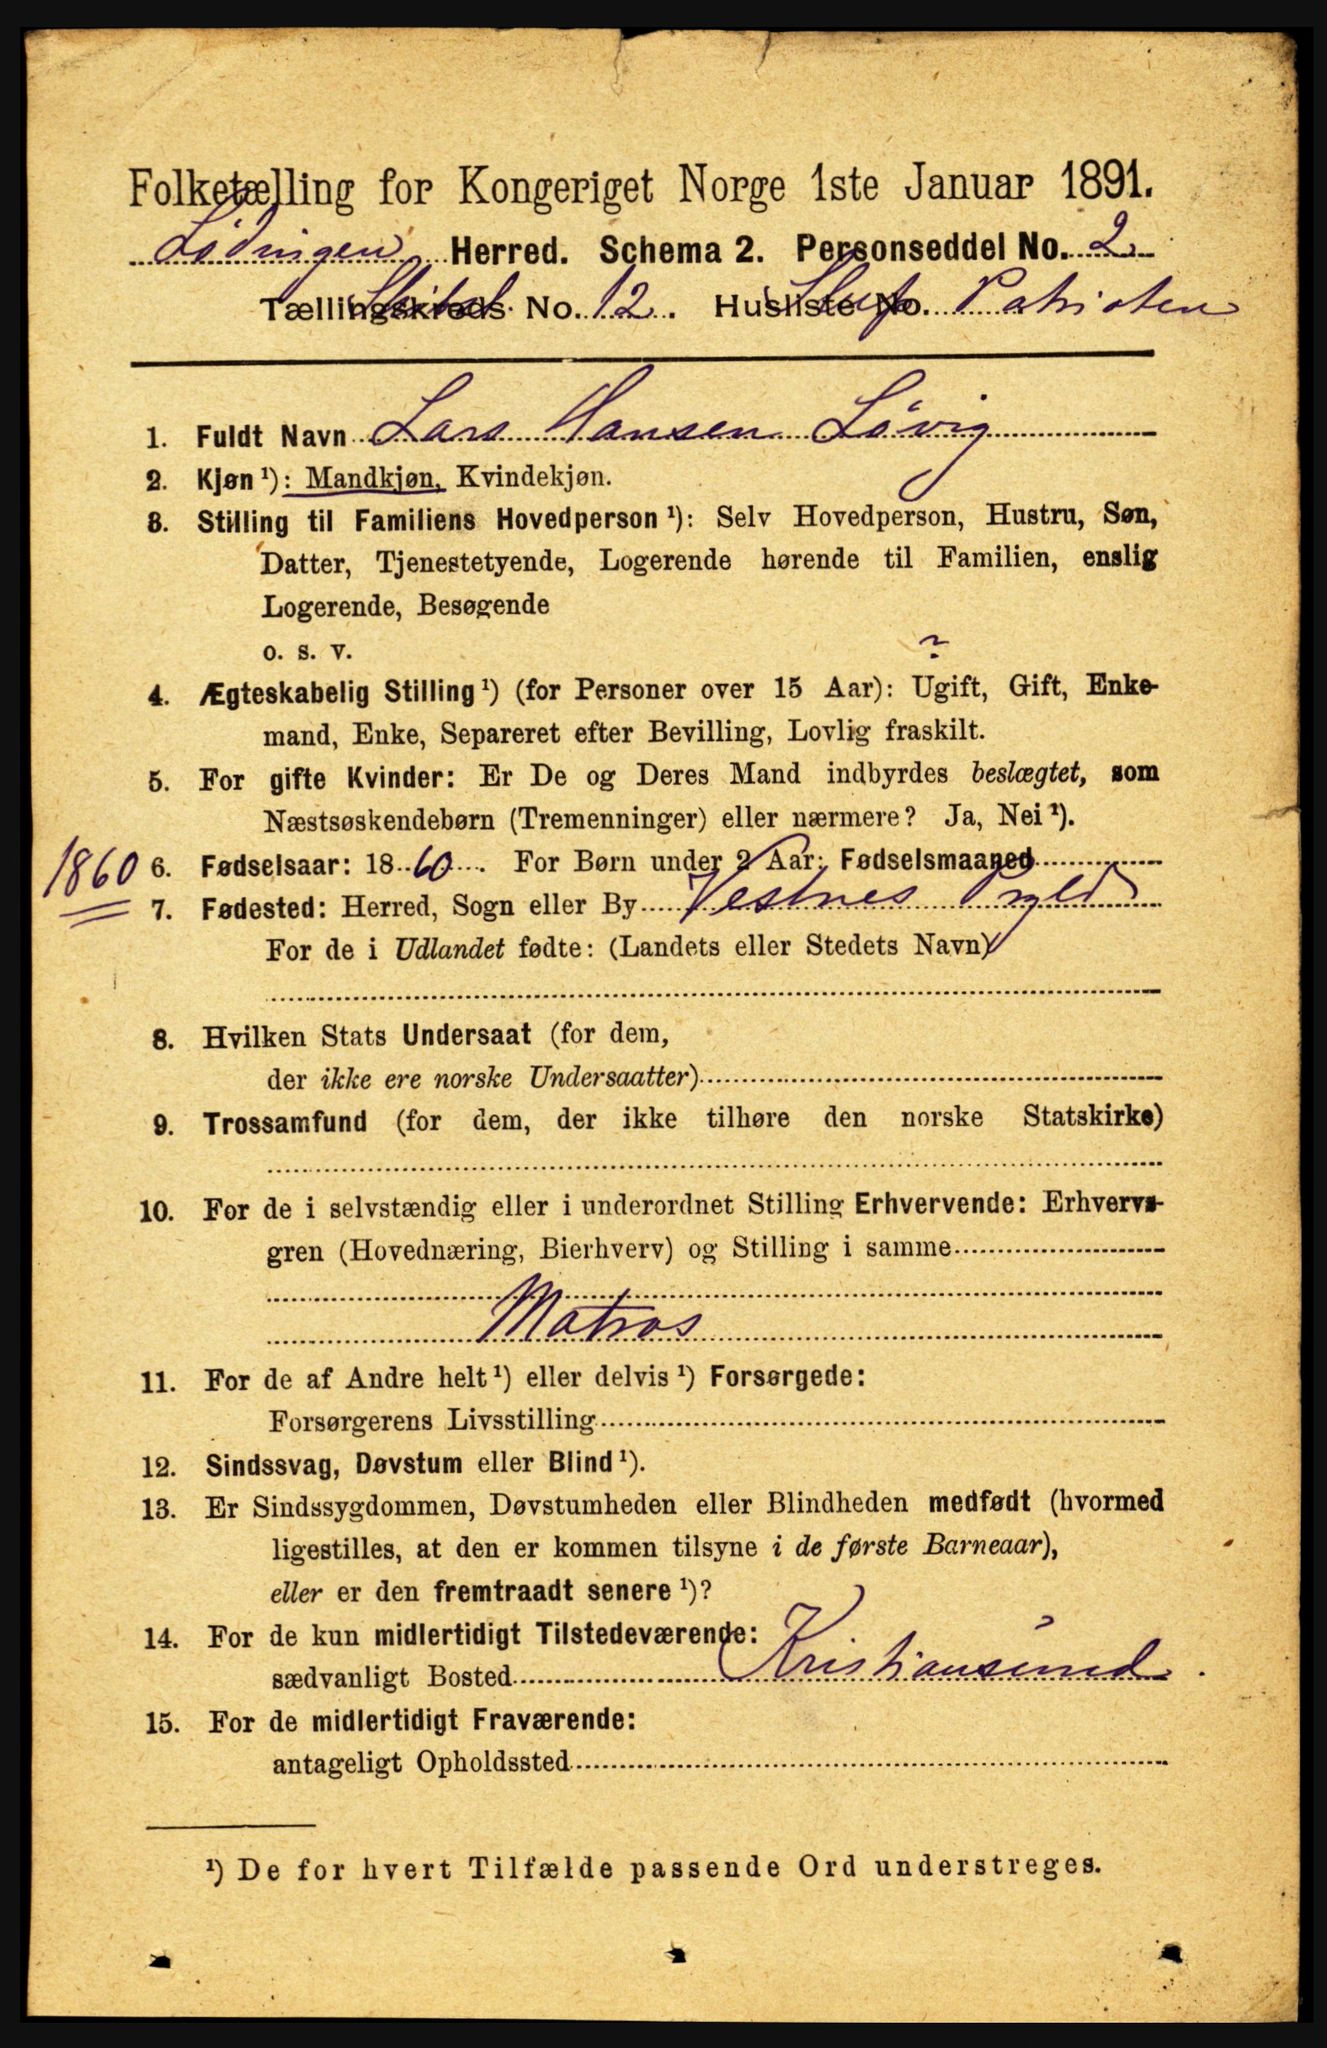 Folketælling for Kongeriget Norge 1ste Januar 1891.
Lödingen Herred. Schema 2. Personseddel No. 2
Tællingskreds No. 12. Husliste No. Patrioten
1. Fuldt Navn Lars Hansen Lövig
2. Kjøn ¹): Mandkjøn, Kvindekjøn.
3. Stilling til Familiens Hovedperson ¹): Selv Hovedperson, Hustru, Søn,
Datter, Tjenestetyende, Logerende hørende til Familien, enslig
Logerende, Besøgende
o. s. v.
?
4. Ægteskabelig Stilling ¹) (for Personer over 15 Aar): Ugift, Gift, Enke-
mand, Enke, Separeret efter Bevilling, Lovlig fraskilt.
5. For gifte Kvinder: Er De og Deres Mand indbyrdes beslægtet, som
Næstsøskendebørn (Tremenninger) eller nærmere? Ja, Nei ¹).
1860 6. Fødselsaar: 1860. For Børn under 2 Aar: Fødselsmaaned
7. Fødested: Herred, Sogn eller By Vestnes Prgld
For de i Udlandet fødte: (Landets eller Stedets Navn)
8. Hvilken Stats Undersaat (for dem,
der ikke ere norske Undersaatter)
9. Trossamfund (for dem, der ikke tilhøre den norske Statskirke)
10. For de i selvstændig eller i underordnet Stilling Erhvervende: Erhvervs-
gren (Hovednæring, Bierhverv) og Stilling i samme
Matros
11. For de af Andre helt ¹) eller delvis ¹) Forsørgede:
Forsørgerens Livsstilling
12. Sindssvag, Døvstum eller Blind ¹).
13. Er Sindssygdommen, Døvstumheden eller Blindheden medfødt (hvormed
ligestilles, at den er kommen tilsyne i de første Barneaar),
eller er den fremtraadt senere ¹)?
14. For de kun midlertidigt Tilstedeværende:
sædvanligt Bosted Kristiansund.
15. For de midlertidigt Fraværende:
antageligt Opholdssted
¹) De for hvert Tilfælde passende Ord understreges.